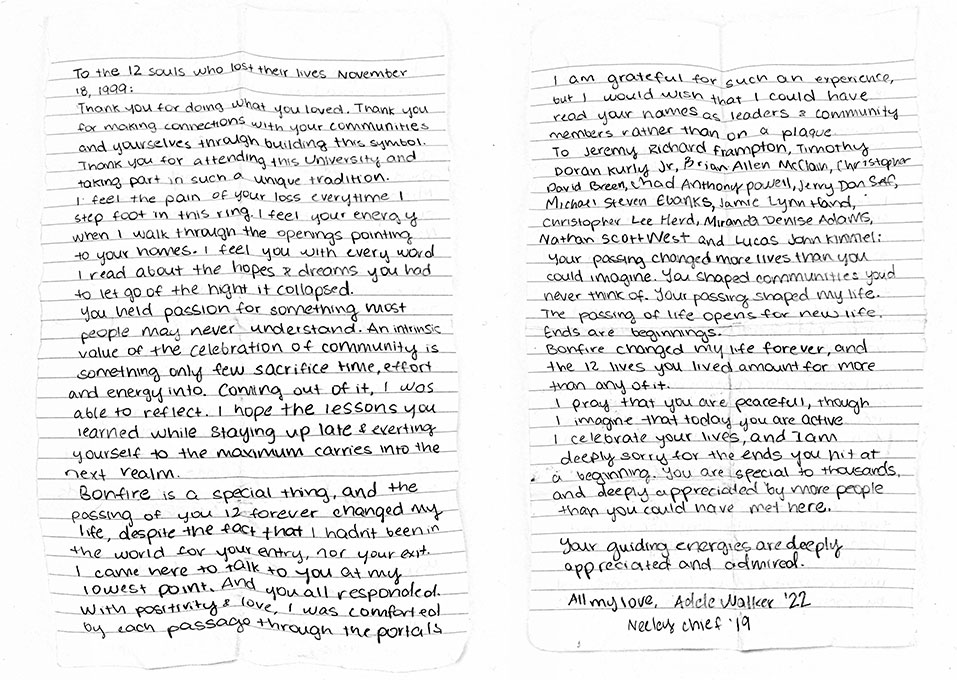 To the 12 souls who lost their lives November
18, 1999:
Thank you for doing what you loved. Thank you
for making connections with your communities
and yourselves through building this symbol.
Thank you for attending this University and
taking part in such a unique tradition.
I feel the pain of your loss everytime I
step foot in this ring. I feel your energy
when I walk through the openings pointing
to your homes. I feel you with every word
I read about the hopes & dreams you had
to let go of the night it collapsed.
You held passion for something most
people may never understand. An intrinsic
value of the celebration of community is
something only few sacrifice time, effort
and energy into. Coming out of it, I was
able to reflect. I hope the lessons you
learned while staying up late & exerting
yourself to the maximum carries into the
next realm.
Bonfire is a special thing, and the
passing of you 12 forever changed my
life, despite the fact that I hadn't been in
the world for your entry, nor your exit.
I came here to talk to you at my
lowest point. And you all responded.
With positivity & love, I was comforted
by each passage through the portals
I am grateful for such an experience,
but I would wish that I could have
read your names as leaders & community
members rather than on a plaque.
To Jeremy Richard Frampton, Timothy
Doran Kurly Jr, Brian Allen McClain, Christopher
David Breen, Chad Anthony Powell, Jerry Don Self,
Michael Steven Ebanks, Jamie Lynn Hand,
Christopher Lee Herd, Miranda Denise Adams,
Nathan Scott West and Lucas John Kimmel:
Your passing changed more lives than you
could imagine. You shaped communities you'd
never think of. Your passing shaped my life.
The passing of life opens for new life.
Ends are beginnings.
Bonfire changed my life forever, and
the 12 lives you lived amount for more
than any of it.
I pray that you are peaceful, though
I imagine that today you are active
I celebrate your lives, and I am
deeply sorry for the ends you hit at
a beginning. You are special to thousands,
and deeply appreciated by more people
than you could have met here.
Your guiding energies are deeply
appreciated and admired.
All my love, Adele Walker '22
Neeley Chief '19